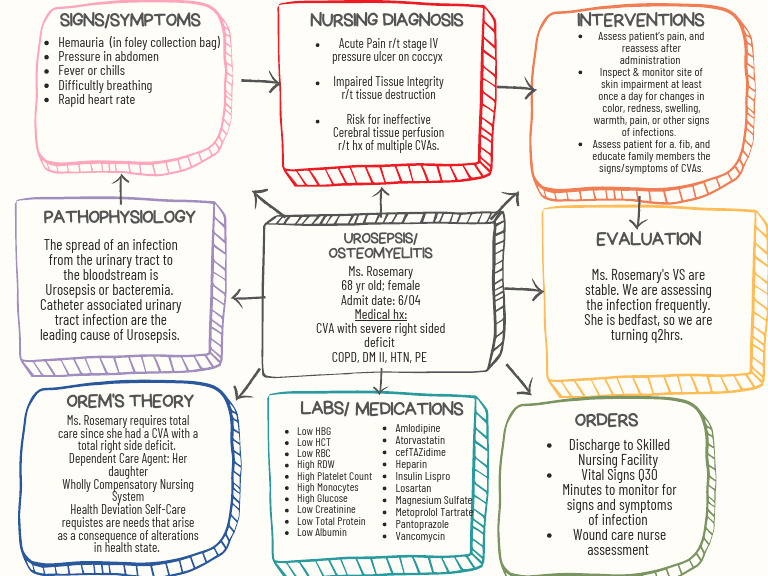 SIGNS/SYMPTOMS
Hemauria (in foley collection bag)
Pressure in abdomen
Fever or chills
Difficultly breathing
Rapid heart rate
NURSING DIAGNOSIS
Acute Pain r/t stage IV
pressure ulcer on coccyx
Impaired Tissue Integrity
r/t tissue destruction
Risk for ineffective
Cerebral tissue perfusion
r/t hx of multiple CVAs.
INTERVENTIONS
Assess patient's pain, and
reassess after
administration
Inspect & monitor site of
skin impairment at least
once a day for changes in
color, redness, swelling,
warmth, pain, or other signs
of infections.
Assess patient for a. fib, and
educate family members the
signs/symptoms of CVAs.
PATHOPHYSIOLOGY
The spread of an infection
from the urinary tract to
the bloodstream is
Urosepsis or bacteremia.
Catheter associated urinary
tract infection are the
leading cause of Urosepsis.
UROSEPSIS/
OSTEOMYELITIS
Ms. Rosemary
68 yr old; female
Admit date: 6/04
Medical hx:
CVA with severe right sided
deficit
COPD, DM II, HTN, PE
EVALUATION
Ms. Rosemary's VS are
stable. We are assessing
the infection frequently.
She is bedfast, so we are
turning q2hrs.
OREM'S THEORY
Ms. Rosemary requires total
care since she had a CVA with a
total right side deficit.
Dependent Care Agent: Her
daughter
Wholly Compensatory Nursing
System
Health Deviation Self-Care
requistes are needs that arise
as a consequence of alterations
in health state.
LABS/ MEDICATIONS
Low HBG
Low HCT
Low RBC
High RDW
High Platelet Count
High Monocytes
High Glucose
Low Creatinine
Low Total Protein
Low Albumin
Amlodipine
Atorvastatin
cefTAZidime
Heparin
Insulin Lispro
Losartan
Magnesium Sulfate
Metoprolol Tartrate
Pantoprazole
Vancomycin
ORDERS
Discharge to Skilled
Nursing Facility
Vital Signs Q30
Minutes to monitor for
signs and symptoms
of infection
Wound care nurse
assessment